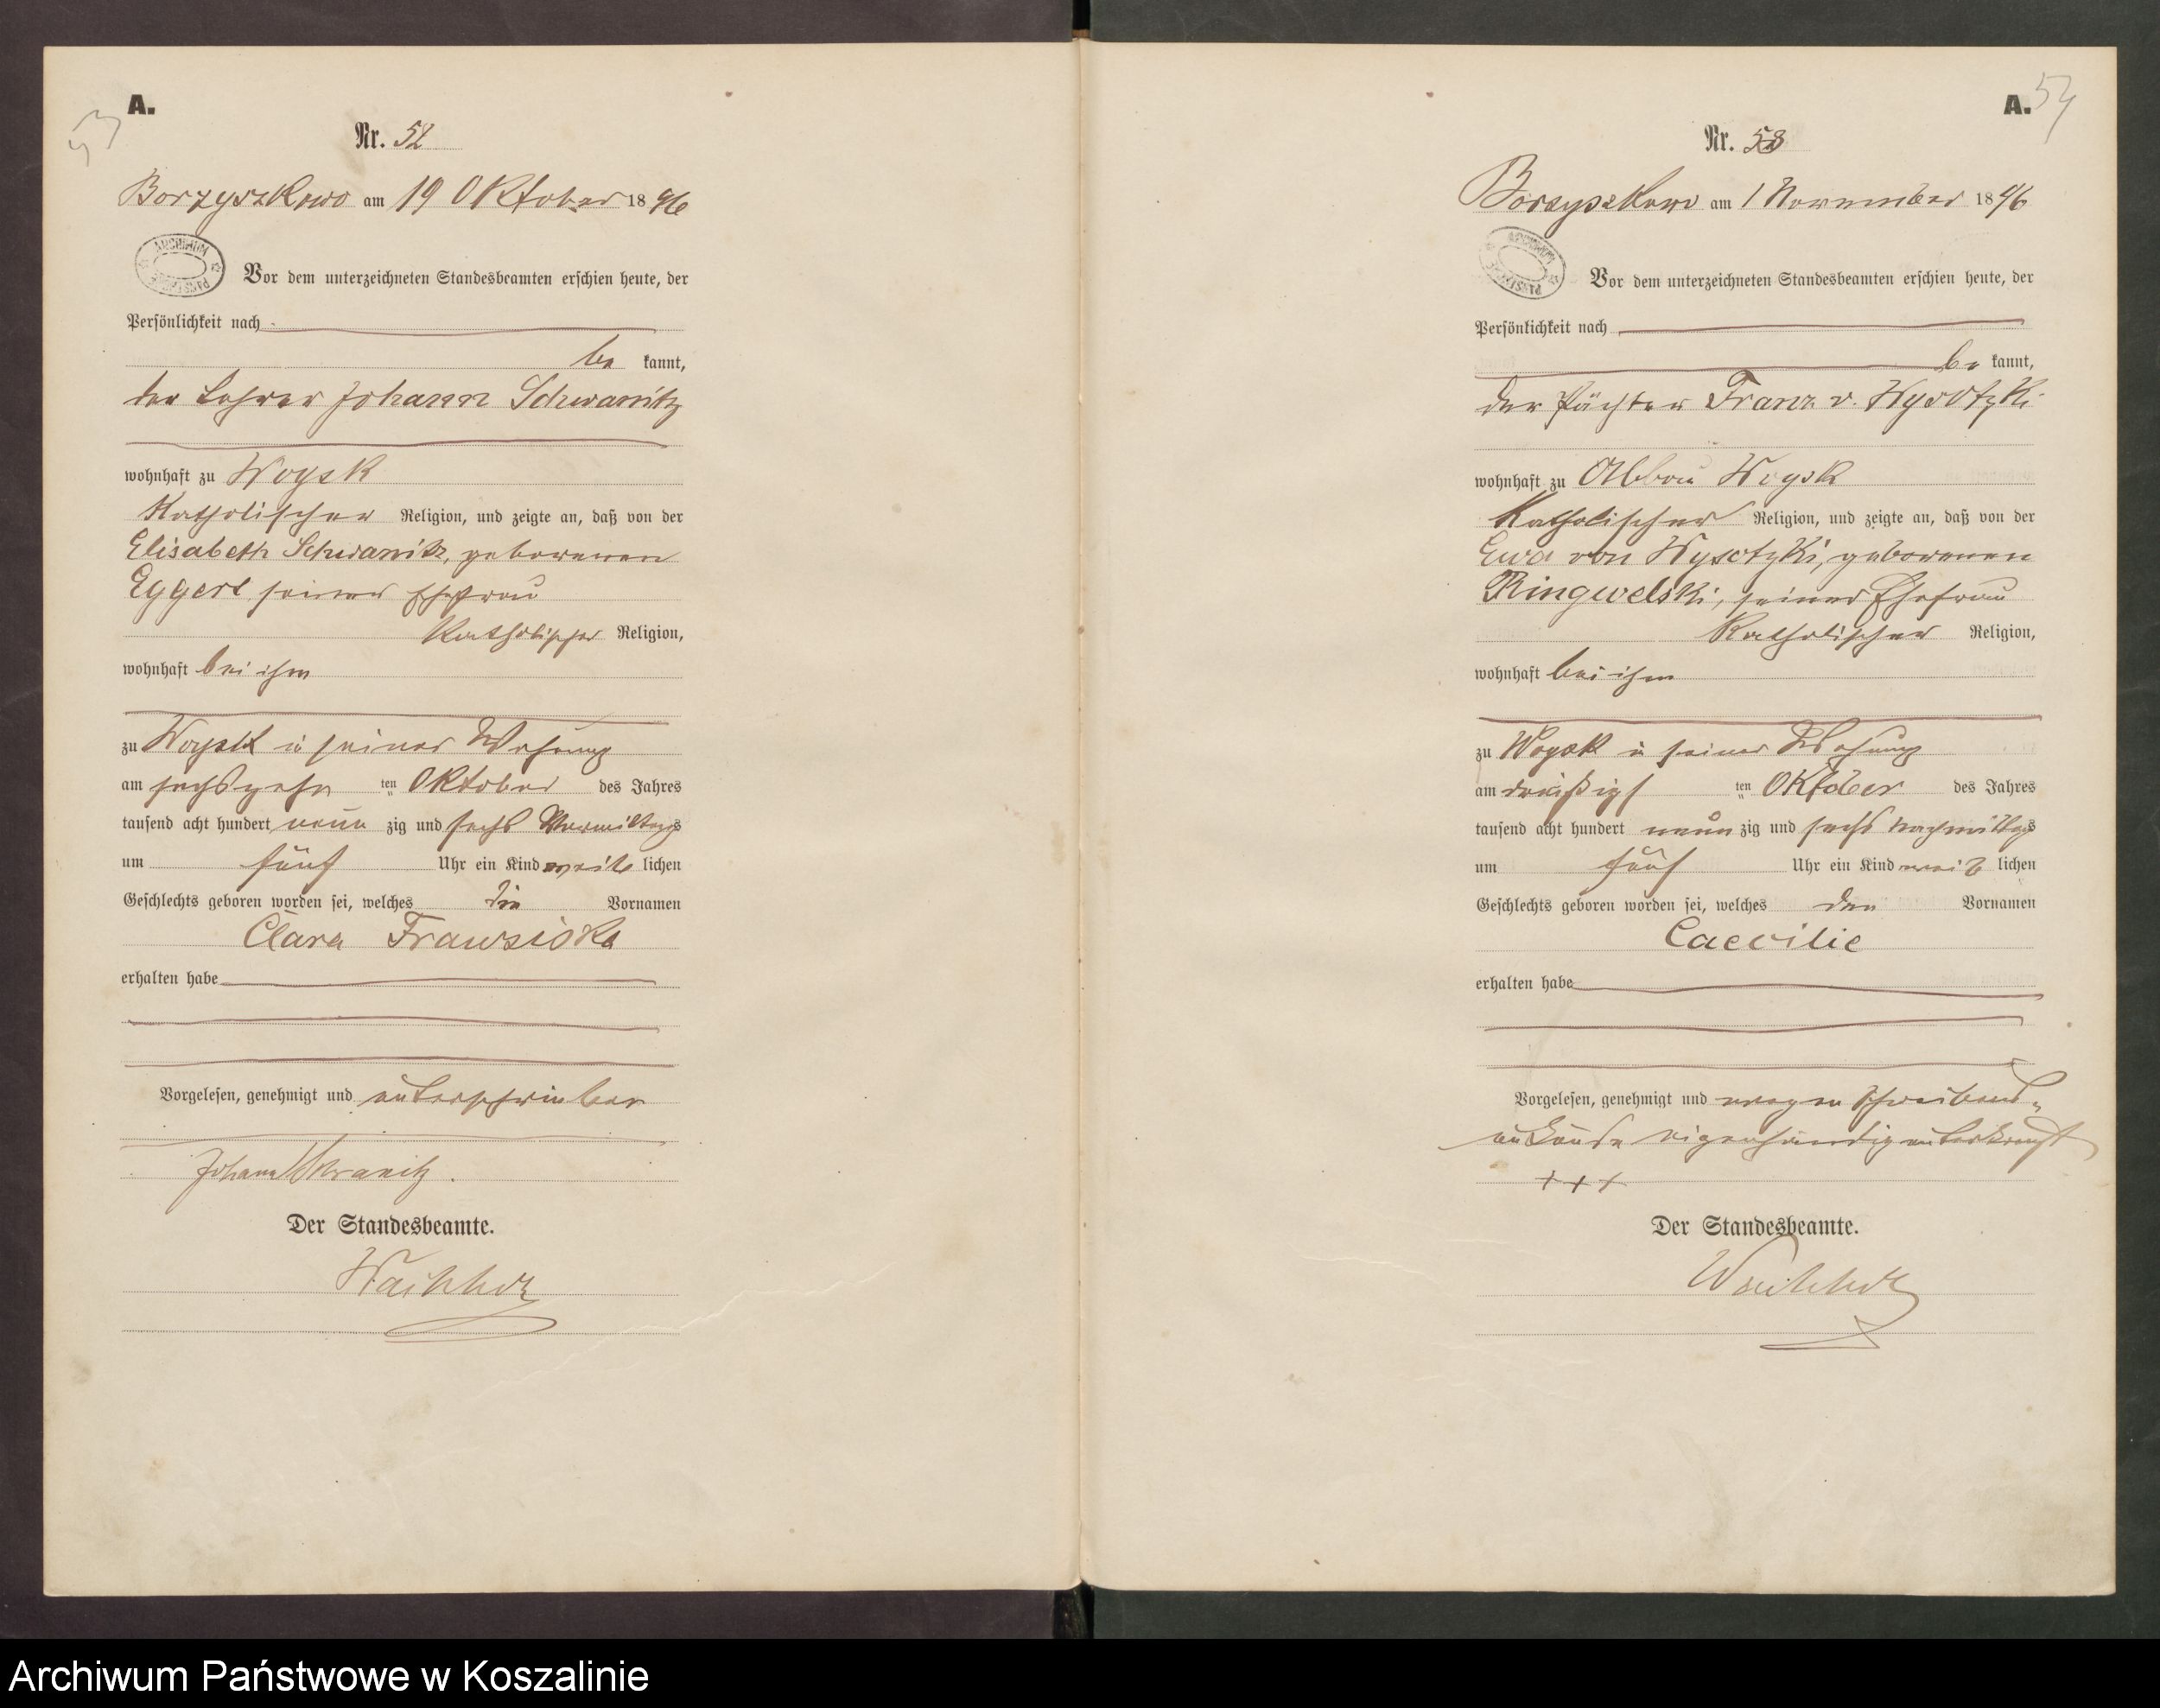 53
A.
Nr. 52
Borzyszkowo am 19 Oktober 1896
ARCHIWUM
Vor dem unterzeichneten Standesbeamten erschien heute, der
Persönlichkeit nach
be kannt,
der Lehrer Johann Schwanitz
wohnhaft zu Woysk
Katholischer Religion, und zeigte an, daß von der
Elisabeth Schwanitz, geborenen
Eggert seiner Ehefrau
Katholischer Religion,
wohnhaft bei ihm
zu Woysk in seiner Wohnung
am sechszehn ten Oktober des Jahres
tausend acht hundert neun zig und sechs Vormittags
um fünf Uhr ein Kind weib lichen
Geschlechts geboren worden sei, welches die Vornamen
Clara Franziska
erhalten habe
Vorgelesen, genehmigt und unterschrieben
Johann Schwanitz.
Der Standesbeamte.
54
A.
Nr. 53
Borzyszkowo am 1 November 1896
ARCHIWUM
Vor dem unterzeichneten Standesbeamten erschien heute, der
Persönlichkeit nach
be kannt,
der Pächter Franz v. Wysotzki
wohnhaft zu Abbau Woysk
Katholischer Religion, und zeigte an, daß von der
Ewa von Wysotzki, geborenen
Ringwelski, seiner Ehefrau
Katholischer Religion,
wohnhaft bei ihm
zu Woysk in seiner Wohnung
am dreißigs ten Oktober des Jahres
tausend acht hundert neun zig und sechs Nachmittags
um fünf Uhr ein Kind weib lichen
Geschlechts geboren worden sei, welches den Vornamen
Caecilie
erhalten habe
Vorgelesen, genehmigt und wegen Schreibens-
unkunde eigenhändig unterkreuzt
+++
Der Standesbeamte.
Archiwum Państwowe w Koszalinie